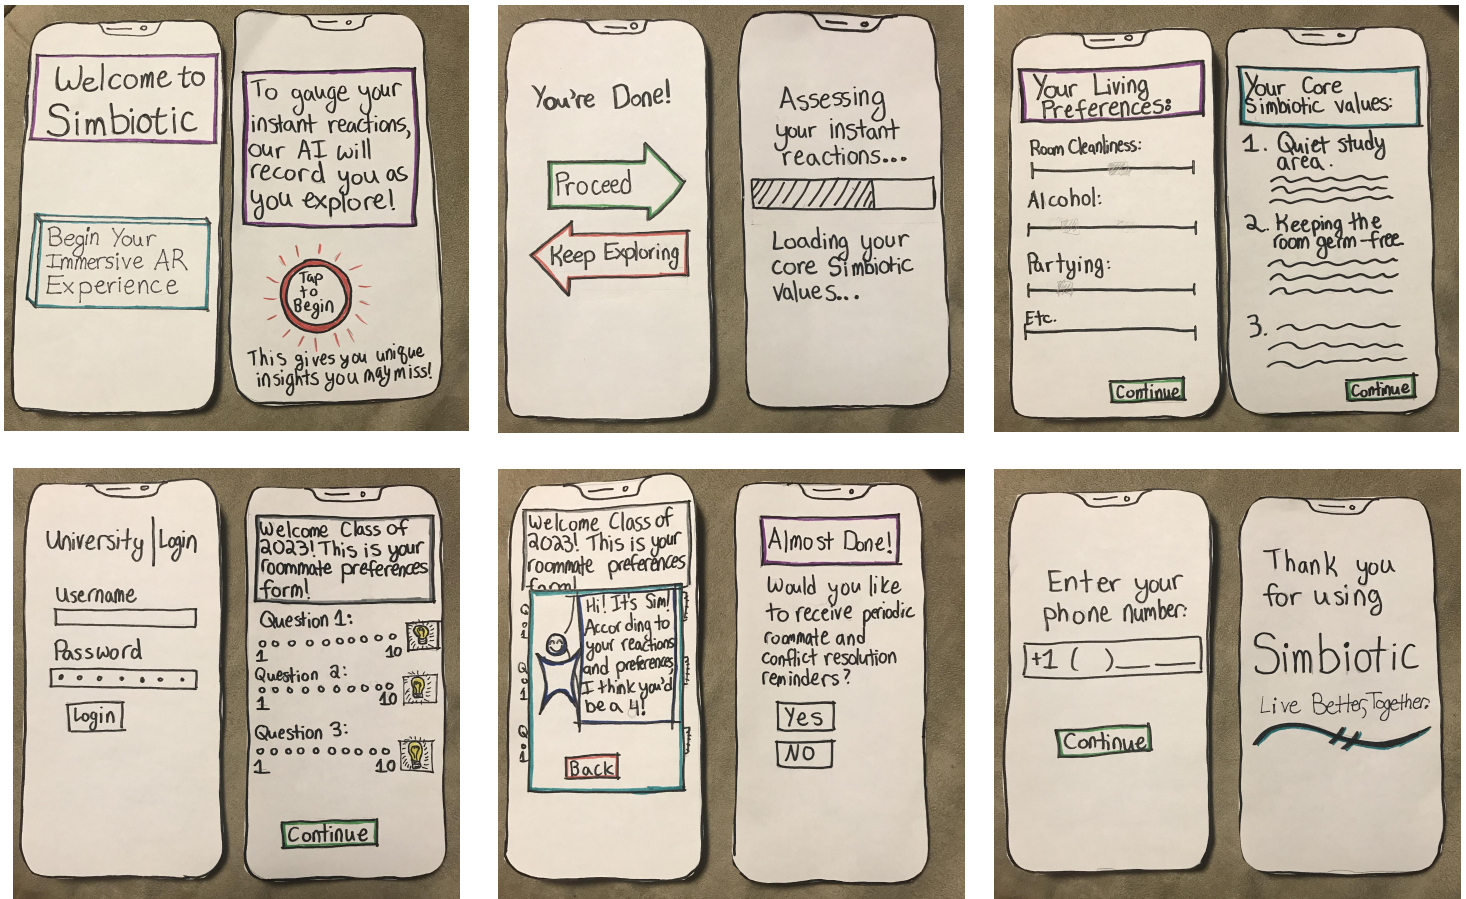 Welcome to
Simbiotic
Begin Your
Immersive AR
Experience
To gauge your
instant reactions,
our AI will
record you as
you explore!
Tap
to
Begin
This gives you unique
insights you may miss!
You're Done!
Proceed
Keep Exploring
Assessing
your instant
reactions...
Loading your
core Simbiotic
values...
Your Living
Preferences:
Room Cleanliness:
Alcohol:
Partying:
Etc.
Continue
Your Core
Simbiotic values:
1. Quiet study
area.
2. Keeping the
room germ-free
3.
Continue
University | Login
Username
Password
Login
Welcome Class of
2023! This is your
roommate preferences
form!
Question 1:
1 10
Question 2:
1 10
Question 3:
1 10
Continue
Welcome Class of
2023! This is your
roommate preferences
form!
Q
1
Q
1
Q
1
Hi! It's Sim!
According to
your reactions
and preferences,
I think you'd
be a 4!
Back
Almost Done!
Would you like
to receive periodic
roommate and
conflict resolution
reminders?
Yes
NO
Enter your
phone number:
+1 ( ) __ __
Continue
Thank you
for using
Simbiotic
Live Better, Together.